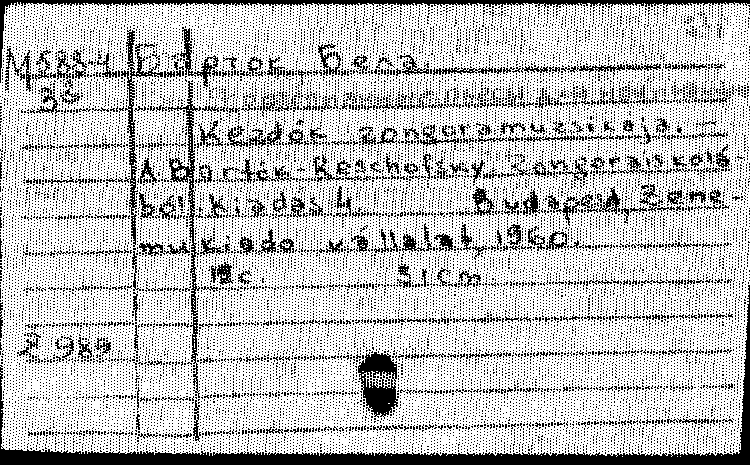 М588-4 Барток Бела.
38
Kezdők zongoramuzsikája. –
A Bartók-Reschofsky Zongoraiskolá-
ból. kiadás 4. Budapest, Zene-
mükiado vállalat, 1960.
12c. 31cm
989